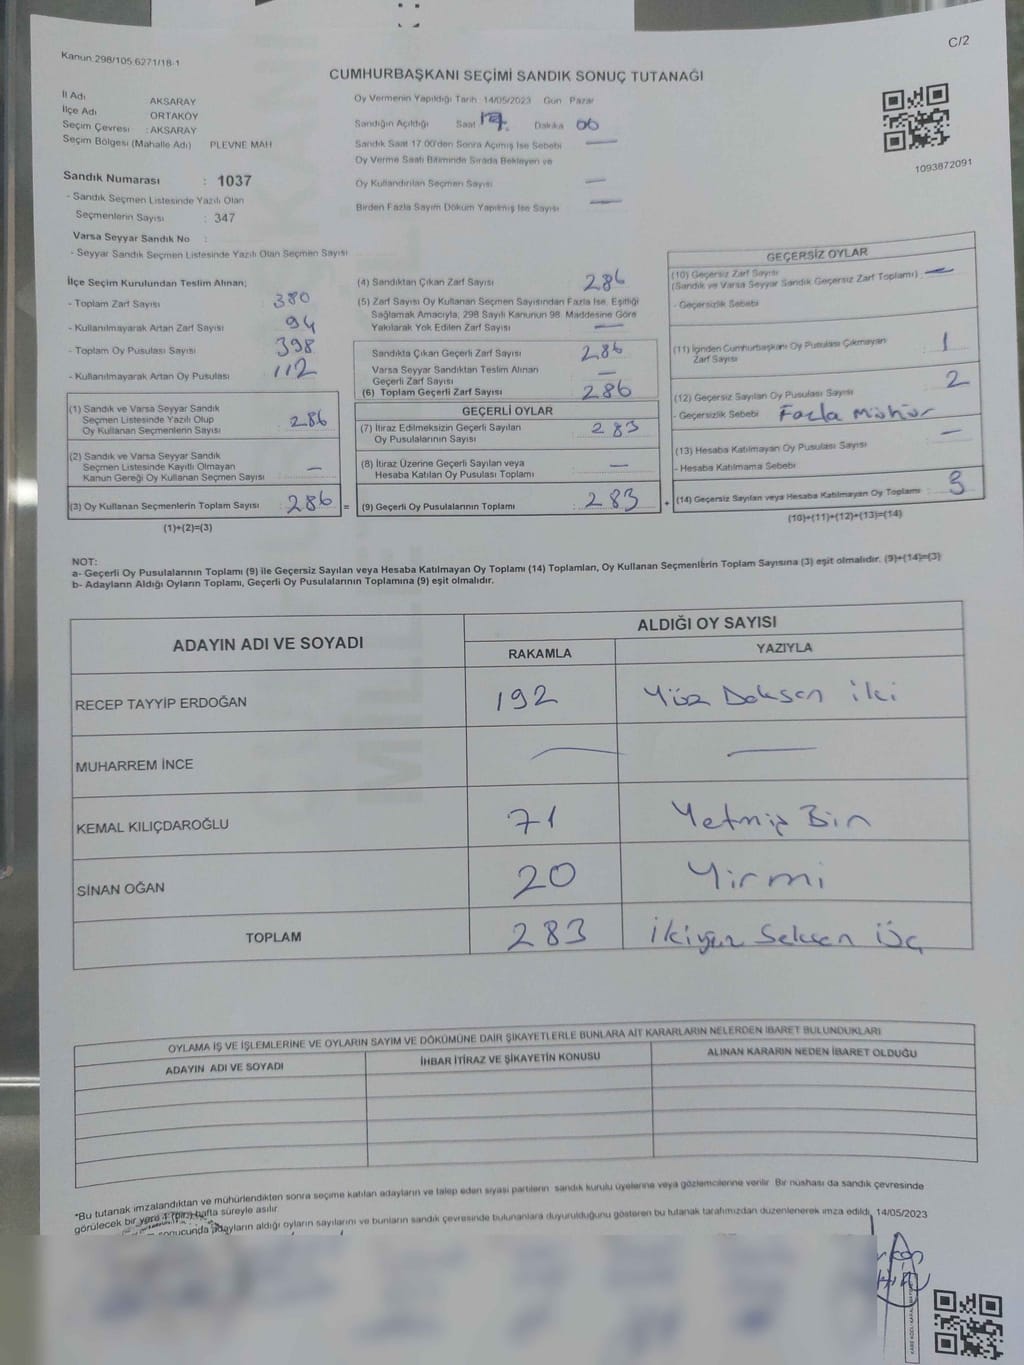 C/2
Kanun:298/105,6271/18-1
CUMHURBAŞKANI SEÇİMİ SANDIK SONUÇ TUTANAĞI
İl Adı AKSARAY
İlçe Adı ORTAKÖY
Seçim Çevresi : AKSARAY
Seçim Bölgesi (Mahalle Adı) PLEVNE MAH
Sandık Numarası : 1037
- Sandık Seçmen Listesinde Yazılı Olan
Seçmenlerin Sayısı : 347
Varsa Seyyar Sandık No :
- Seyyar Sandık Seçmen Listesinde Yazılı Olan Seçmen Sayısı
Oy Vermenin Yapıldığı Tarih: 14/05/2023 Gün Pazar
Sandığın Açıldığı Saat 17 Dakika 06
Sandık Saat 17:00'den Sonra Açımış İse Sebebi —
Oy Verme Saati Bitiminde Sırada Bekleyen ve
Oy Kullandırılan Seçmen Sayısı —
Birden Fazla Sayım Döküm Yapılmış İse Sayısı —
1093872091
İlçe Seçim Kurulundan Teslim Alınan;
- Toplam Zarf Sayısı 380
- Kullanılmayarak Artan Zarf Sayısı 94
- Toplam Oy Pusulası Sayısı 398
- Kullanılmayarak Artan Oy Pusulası 112
(1) Sandık ve Varsa Seyyar Sandık
Seçmen Listesinde Yazılı Olup
Oy Kullanan Seçmenlerin Sayısı 286
(2) Sandık ve Varsa Seyyar Sandık
Seçmen Listesinde Kayıtlı Olmayan
Kanun Gereği Oy Kullanan Seçmen Sayısı —
(3) Oy Kullanan Seçmenlerin Toplam Sayısı : 286 =
(1)+(2)=(3)
(4) Sandıktan Çıkan Zarf Sayısı 286
(5) Zarf Sayısı Oy Kullanan Seçmen Sayısından Fazla İse, Eşitliği
Sağlamak Amacıyla; 298 Sayılı Kanunun 98. Maddesine Göre
Yakılarak Yok Edilen Zarf Sayısı —
Sandıkta Çıkan Geçerli Zarf Sayısı 286
Varsa Seyyar Sandıktan Teslim Alınan
Geçerli Zarf Sayısı —
(6) Toplam Geçerli Zarf Sayısı 286
GEÇERLİ OYLAR
(7) İtiraz Edilmeksizin Geçerli Sayılan
Oy Pusulalarının Sayısı 283
(8) İtiraz Üzerine Geçerli Sayılan veya
Hesaba Katılan Oy Pusulası Toplamı —
(9) Geçerli Oy Pusulalarının Toplamı : 283 +
GEÇERSİZ OYLAR
(10) Geçersiz Zarf Sayısı
(Sandık ve Varsa Seyyar Sandık Geçersiz Zarf Toplamı) : —
- Geçersizlik Sebebi
(11) İçinden Cumhurbaşkanı Oy Pusulası Çıkmayan
Zarf Sayısı 1
(12) Geçersiz Sayılan Oy Pusulası Sayısı 2
- Geçersizlik Sebebi Fazla Mühür
(13) Hesaba Katılmayan Oy Pusulası Sayısı —
- Hesaba Katılmama Sebebi
(14) Geçersiz Sayılan veya Hesaba Katılmayan Oy Toplamı : 3
(10)+(11)+(12)+(13)=(14)
NOT:
a- Geçerli Oy Pusulalarının Toplamı (9) ile Geçersiz Sayılan veya Hesaba Katılmayan Oy Toplamı (14) Toplamları, Oy Kullanan Seçmenlerin Toplam Sayısına (3) eşit olmalıdır. (9)+(14)=(3)
b- Adayların Aldığı Oyların Toplamı, Geçerli Oy Pusulalarının Toplamına (9) eşit olmalıdır.
ADAYIN ADI VE SOYADI
ALDIĞI OY SAYISI
RAKAMLA YAZIYLA
RECEP TAYYİP ERDOĞAN 192 Yüz Doksan iki
MUHARREM İNCE — —
KEMAL KILIÇDAROĞLU 71 Yetmiş Bir
SİNAN OĞAN 20 Yirmi
TOPLAM 283 İkiyüz Seksen Üç
OYLAMA İŞ VE İŞLEMLERİNE VE OYLARIN SAYIM VE DÖKÜMÜNE DAİR ŞİKAYETLERLE BUNLARA AİT KARARLARIN NELERDEN İBARET BULUNDUKLARI
ADAYIN ADI VE SOYADI İHBAR İTİRAZ VE ŞİKAYETİN KONUSU ALINAN KARARIN NEDEN İBARET OLDUĞU
*Bu tutanak imzalandıktan ve mühürlendikten sonra seçime katılan adayların ve talep eden siyasi partilerin sandık kurulu üyelerine veya gözlemcilerine verilir. Bir nüshası da sandık çevresinde
görülecek bir yere 1 (bir) hafta süreyle asılır.
sonucunda adayların aldığı oyların sayılarını ve bunların sandık çevresinde bulunanlara duyurulduğunu gösteren bu tutanak tarafımızdan düzenlenerek imza edildi. 14/05/2023